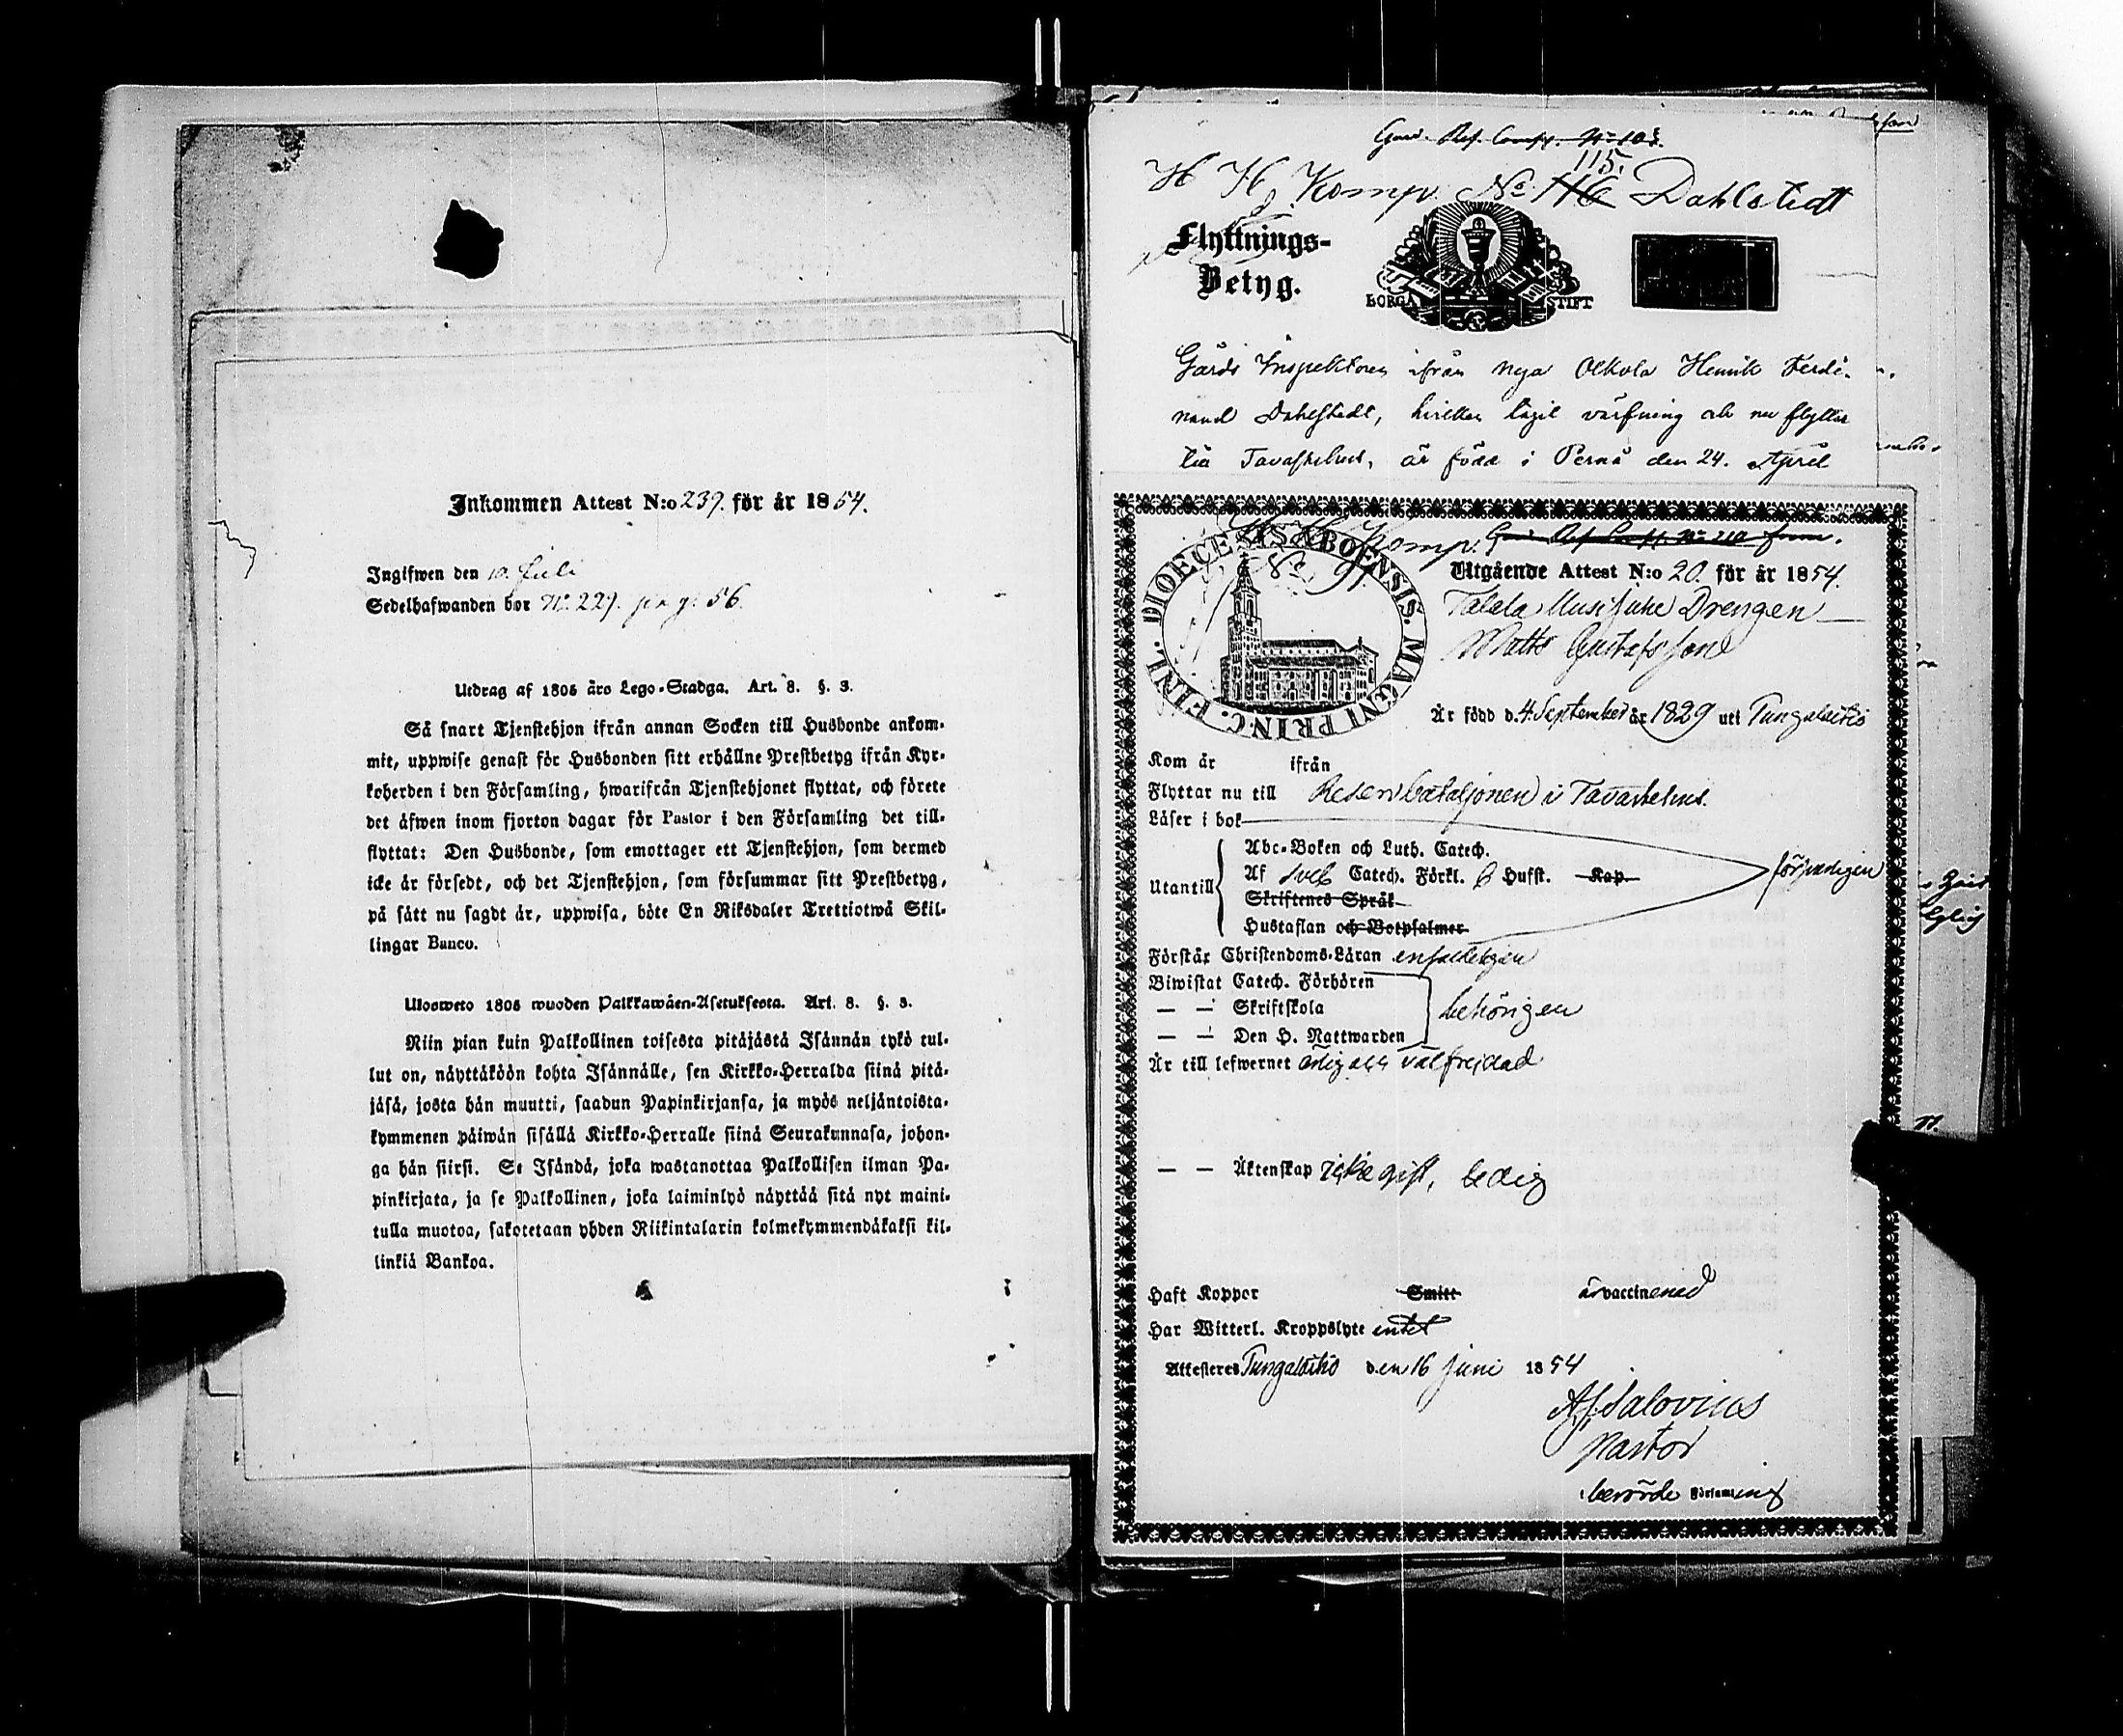 Inkommen Attest N:o 239. för år 1854.
Ingifwen den 10. Juli
Sedelhafwanden bor N:o 227. pag. 56.
Utdrag af 1805 års Lego-Stadga. Art. 8. §. 3.
Så snart Tjenstehjon ifrån annan Socken till Husbonde ankom-
mit, uppwise genast för Husbonden sitt erhållne Prestbetyg ifrån Kyr-
koherden i den Församling, hwarifrån Tjenstehjonet flyttat, och förete
det äfwen inom fjorton dagar för Pastor i den Församling det till-
flyttat: Den Husbonde, som emottager ett Tjenstehjon, som dermed
icke är försedt, och det Tjenstehjon, som försummar sitt Prestbetyg,
på sätt nu sagdt är, uppwisa, böte En Riksdaler Trettiotwå Skil-
lingar Banco.
Ulosweto 1805 wuoden Palkkawäen-Asetuksesta. Art. 8. §. 3.
Niin pian kuin Palkollinen toisesta pitäjästä Isännän tykö tul-
lut on, näyttäköön kohta Isännälle, sen Kirkko-Herralda siinä pitä-
jäsä, josta hän muutti, saadun Papinkirjansa, ja myös neljäntoista-
kymmenen päiwän sisällä Kirkko-Herralle siinä Seurakunnasa, johon-
ga hän siirsi. Se Isändä, joka wastanottaa Palkollisen ilman Pa-
pinkirjata, ja se Palkollinen, joka laiminlyö näyttää sitä nyt maini-
tulla muotoa, sakotetaan yhden Riikintalarin kolmekymmendäkaksi kil-
linkiä Bankoa.
115.
H H Komp. No 116 Dahlstedt
Flyttnings-
Betyg.
BORGÅ STIFT
Gårds Inspektoren ifrån nya Olkola Henrik Ferdi-
nand Dahlstedt, hvilken tagit värfning och nu flyttar
till Tavastehus, är född i Pernå den 24. April
DIOECESIS ABOENSIS. MAGNI PRINC. FINL.
H H Komp.
Utgående Attest N:o 20. för år 1854.
Drengen
Matts Gustafsson
Är född d. 4. September år 1829 uti Tungalaitio
Kom år ifrån
Flyttar nu till Reservbataljonen i Tavastehus.
Läser i bok
Abc-Boken och Luth. Catech.
Utantill Af Sveb Catech. Förkl. 6 Hufst. Kap. försvarligen
Skriftenes Språk
Hustaflan och Botpsalmer
Förstår Christendoms-Läran enfaldeligen
Biwistat Catech. Förhören
— — Skriftskola behörigen
— — Den H. Nattwarden
Är till lefwernet ärlig och välfrejdad
— — Äktenskap icke gift, ledig
Haft Koppor Smitt är vaccinerad
Har Witterl. Kroppslyte intet
Attesteres Tungalaitio den 16 Juni 1854
A. J. Salovius
Pastor
i berörde Församling